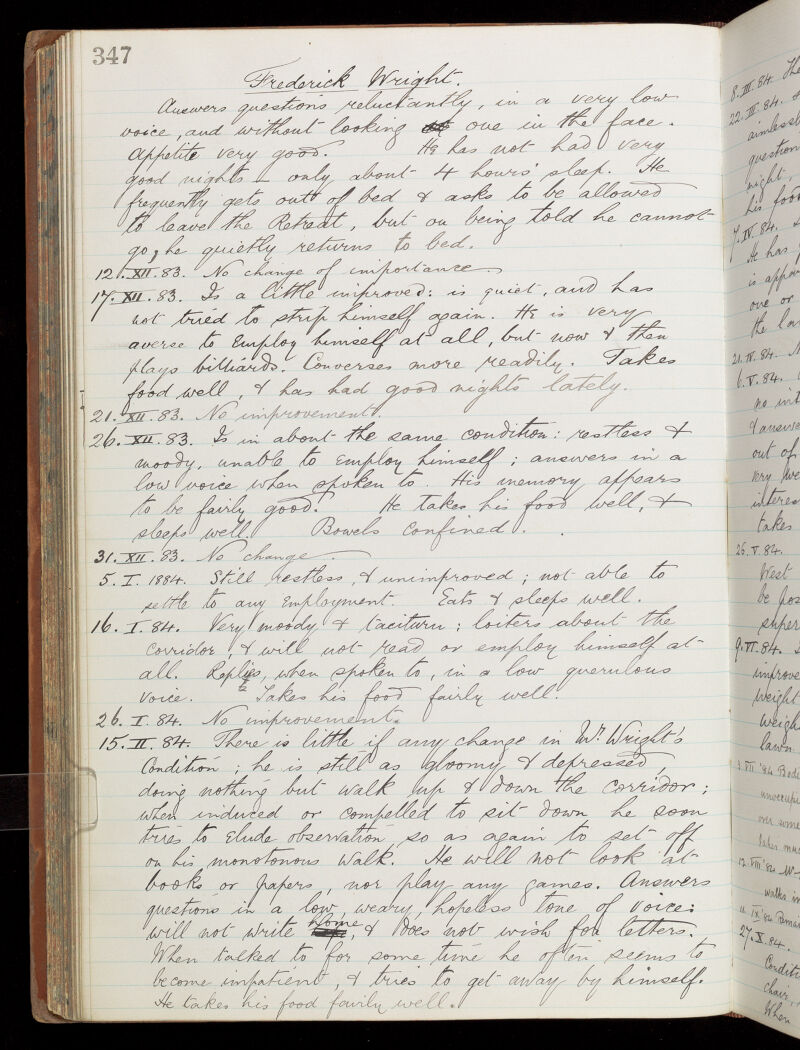 347
Frederick Wright.
Answers questions reluctantly, in a very low
voice, and without looking one in the face.
Appetite very good. He has not had very
good nights – only about 4 hours' sleep. He
frequently gets out of bed & asks to be allowed
to leave the Retreat, but on being told he cannot
go, he quietly returns to bed.
12.XII.83. No change of importance.
17.XII.83. Is a little improved: is quiet, and has
not tried to strip himself again. He is very
averse to employ himself at all, but now & then
plays billiards. Converses more readily. Takes
food well, & has had good nights lately.
21.XII.83. No improvement.
26.XII.83. Is in about the same condition: restless &
moody, unable to employ himself; answers in a
low voice when spoken to. His memory appears
to be fairly good. He takes his food well, &
sleeps well. Bowels confined.
31.XII.83. No change.
5.I.1884. Still restless, & unimproved; not able to
settle to any employment. Eats & sleeps well.
16.I.84. Very moody & taciturn; loiters about the
corridor & will not read or employ himself at
all. Replies, when spoken to, in a low querulous
voice. Takes his food fairly well.
26.I.84. No improvement.
15.II.84. There is little if any change in Mr. Wright's
condition; he is still as gloomy & depressed,
doing nothing but walk up & down the corridor;
when induced or compelled to sit down he soon
tries to elude observation, so as again to set off
on his monotonous walk. He will not look at
books or papers, nor play any games. Answers
questions in a low, weary, hopeless tone of voice:
will not write home, & does not wish for letters.
When talked to for some time he often seems to
become impatient, & tries to get away by himself.
He takes his food fairly well.
8.III.84. The
22.III.84.
aimlessl
question
night,
his food
7.IV.84.
He has
is appa
one or
the la
21.IV.84.
6.V.84.
no int
& answe
out of
very we
interes
takes
26.V.84.
West
be pos
super
9.VI.84.
improve
weight
weigh
lawn
unoccupi
over some
walks in
27.X.84.
Conditi
chair,
When